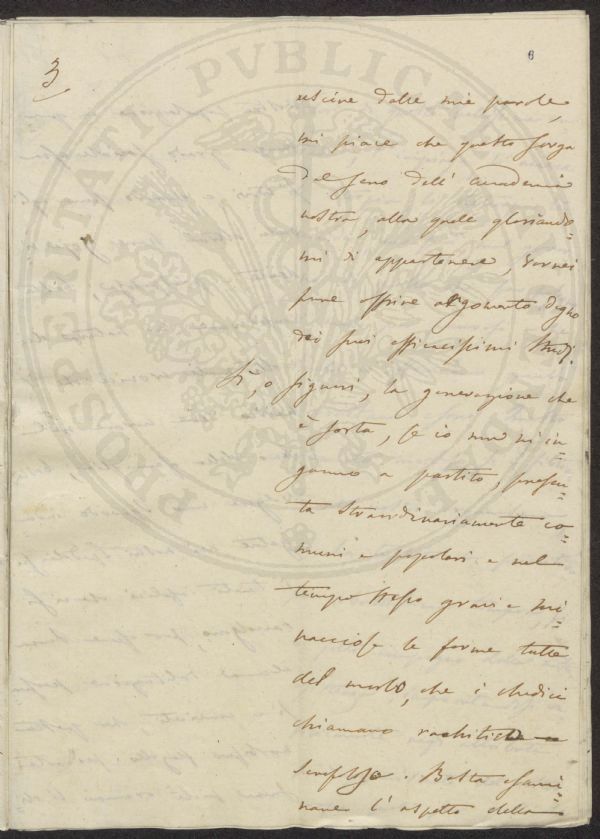 3
6
uscire dalle mie parole,
mi piace che questo sorga
dal seno dell' Accademia
nostra, alla quale gloriando=
mi di appartenere, vorrei
pure offrire argomento degno
dei suoi efficacissimi studj.
Sì, o signori, la generazione che
è sorta, se io non m'in=
ganno a partito, presen=
ta straordinariamente co=
muni e popolari e nel
tempo stesso gravi e mi=
nacciose le forme tutte
del morbo, che i chudici
chiamano rachitico e
scrofoloso. Basta esami=
nare l'aspetto della
PROSPERITATI PVBLICAE AVGENDAE